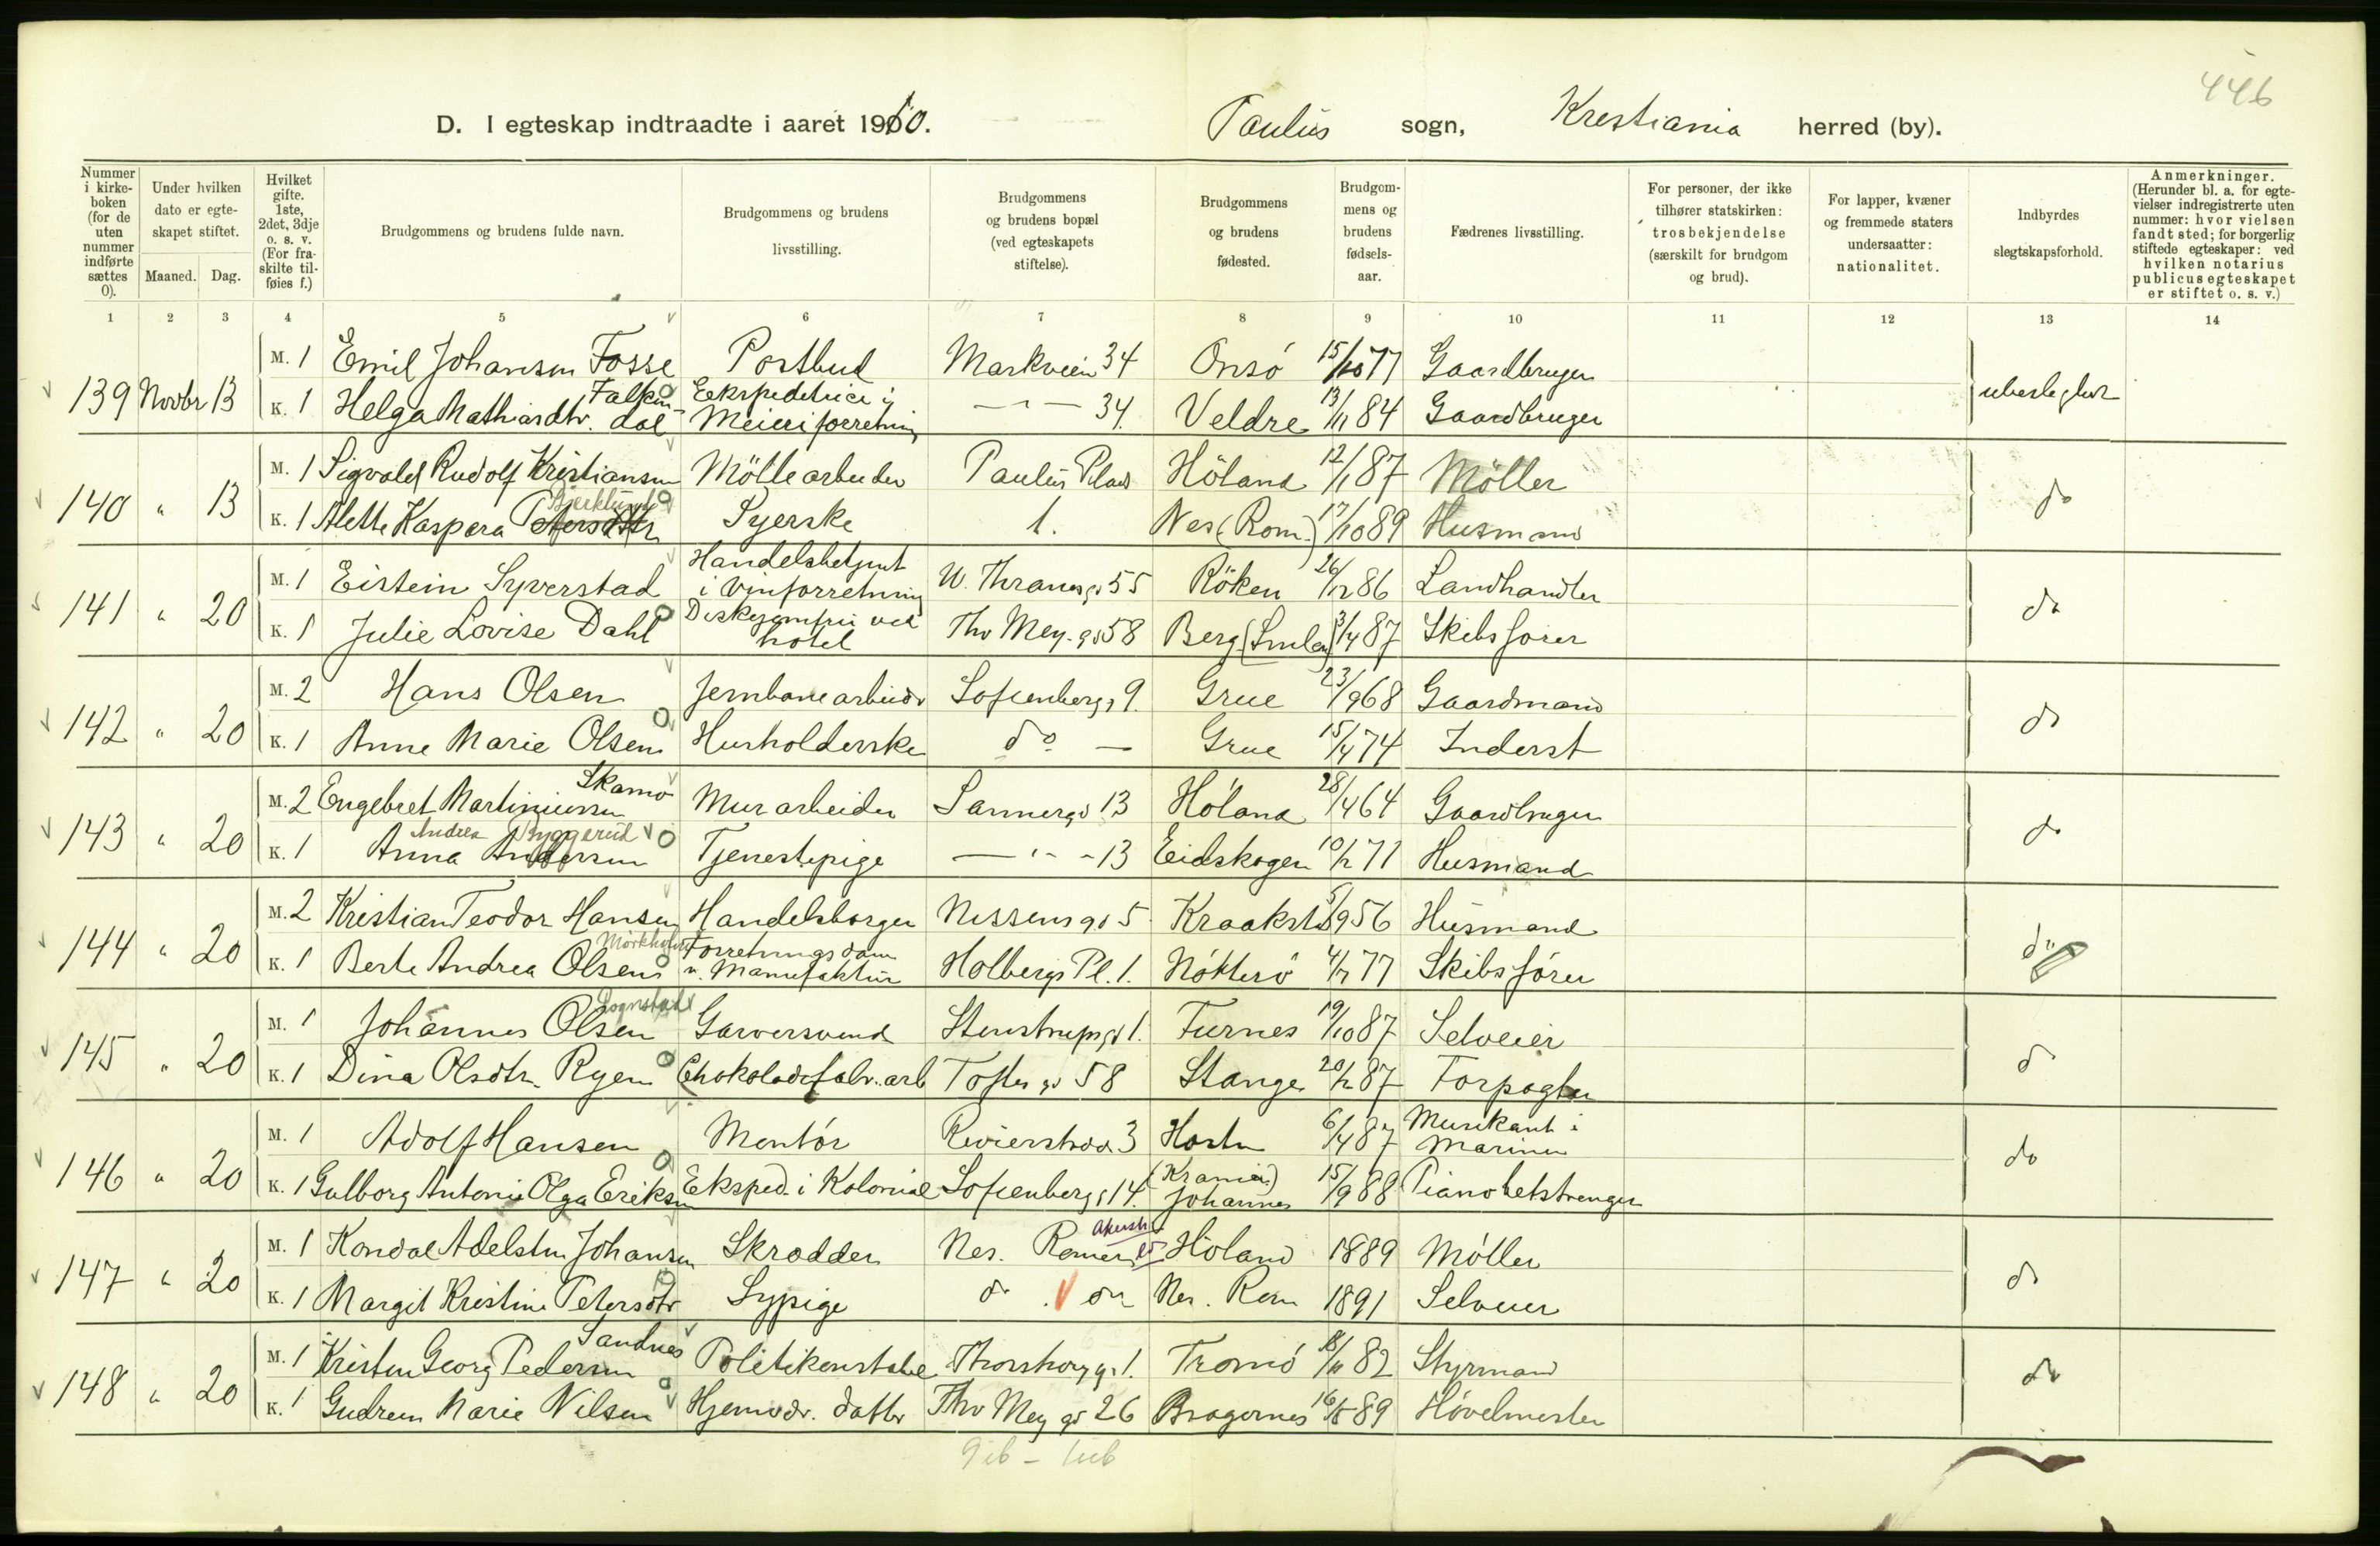 446
D. I egteskap indtraadte i aaret 1910. Paulus sogn, Kristiania herred (by).
Nummer i kirkeboken (for de uten nummer indførte sættes 0).
Under hvilken dato er egteskapet stiftet.
Maaned. Dag.
Hvilket gifte. 1ste, 2det, 3dje o. s. v. (For fraskilte tilføies f.)
Brudgommens og brudens fulde navn.
Brudgommens og brudens livsstilling.
Brudgommens og brudens bopæl (ved egteskapets stiftelse).
Brudgommens og brudens fødested.
Brudgommens og brudens fødselsaar.
Fædrenes livsstilling.
For personer, der ikke tilhører statskirken: trosbekjendelse (særskilt for brudgom og brud).
For lapper, kvæner og fremmede staters undersaatter: nationalitet.
Indbyrdes slegtskapsforhold.
Anmerkninger. (Herunder bl. a. for egtevielser indregistrerte uten nummer: hvor vielsen fandt sted; for borgerlig stiftede egteskaper: ved hvilken notarius publicus egteskapet er stiftet o. s. v.)
1 2 3 4 5 6 7 8 9 10 11 12 13 14
M. 1 Emil Johansen Fosse Postbud Markveien 34 Onsö 15/10 77 Gaardbruger
139 Novbr 13 ubeslegtet
K. 1 Helga Mathiasdtr. Falkendal Ekspeditrice i Meieriforretning — " — 34. Veldre 13/11 84 Gaardbruger
M. 1 Sigvald Rudolf Kristiansen Möllearbeider Paulus Plads Höland 12/1 87 Möller
140 " 13 do
K. 1 Alette Kaspara Petersdtr Bjerklund Syerske 1. Nes (Rom.) 17/10 89 Husmand
M. 1 Eistein Syverstad Handelsbetjent i Vinforretning W. Thranesgd 55 Röken 26/12 86 Landhandler
141 " 20 do
K. 1 Julie Lovise Dahl Diskejomfru ved hotel Thv Mey. gd 58 Berg (Smlen) 3/4 87 Skibsförer
M. 2 Hans Olsen Jernbanearbeider Sofienbergg 9. Grue 23/9 68 Gaardmand
142 " 20 do
K. 1 Anne Marie Olsen Husholderske do — Grue 15/4 74 Inderst
M. 2 Engebret Martiniussen Skamo Murarbeider Sannergd 13 Höland 28/4 64 Gaardbruger
143 " 20 do
K. 1 Anna Andrea Andersen Byggerud Tjenestepige — " - 13 Eidskogen 10/2 71 Husmand
M. 2 Kristian Teodor Hansen Handelsborger Nissensgd 5 Kraakstd 5/9 56 Husmand
144 " 20 do
K. 1 Berte Andrea Olsen Mörkholm Forretningsdame v. Manufaktur Holbergs Pl. 1. Nötterö 4/7 77 Skibsförer
M. 1 Johannes Olsen Sognstad Garversvend Stenstrupsgd 1. Furnes 19/10 87 Selveier
145 " 20 do
K. 1 Dina Olsdtr. Ryen Chokoladefabr. arb Toftesgd 58 Stange 20/2 87 Forpagter
M. 1 Adolf Hansen Montör Revierstræd 3 Horten 6/4 87 Musikant i Marinen
146 " 20 do
K. 1 Gulborg Antonie Olga Eriksen Eksped. i Kolonial Sofienbergg 14. (Krania) Johannes 15/9 88 Pianobetstrenger
M. 1 Kondal Adelsten Johansen Skrædder Nes. Romer. Akersh Höland 1889 Möller
147 " 20 do
K. 1 Margit Kristine Petersdtr Sypige do do Nes. Rom 1891 Selveier
M. 1 Kristen Georg Pedersen Sandnes Politikonstabel Thorshovg. 1. Tromö 18/11 82 Styrmand
148 " 20 do
K. 1 Gudrun Marie Nilsen Hjemvær. datter Thv Mey gd 26 Bragernes 16/5 89 Hövelmester